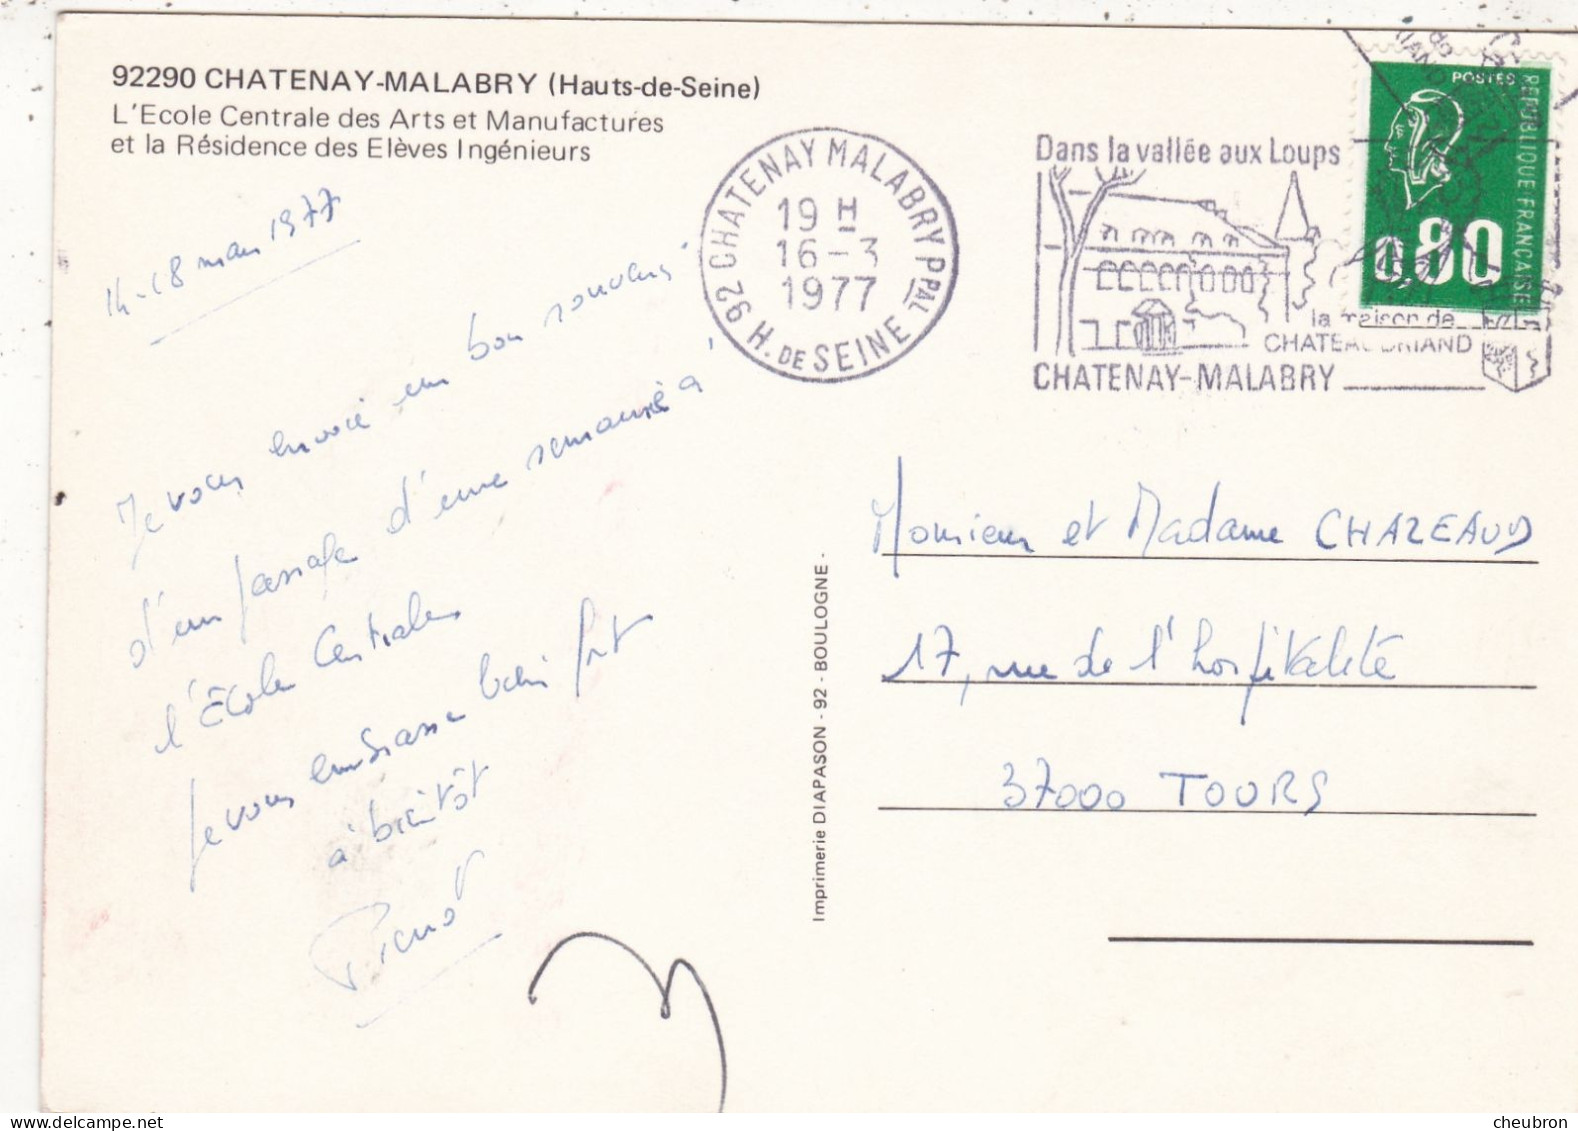 92290 CHATENAY-MALABRY (Hauts-de-Seine)
L'Ecole Centrale des Arts et Manufactures
et la Résidence des Elèves Ingénieurs
14-18 mars 1977
Je vous envoie un bon souvenir
d'un passage d'une semaine à
l'Ecole Centrale
Je vous embrasse bien fort
à bientôt
92 CHATENAY MALABRY PPAL
19 H
16-3
1977
H. DE SEINE
Dans la vallée aux Loups
la maison de
CHATEAUBRIAND
CHATENAY-MALABRY
POSTES
REPUBLIQUE FRANÇAISE
0,80
Imprimerie DIAPASON - 92 - BOULOGNE -
Monsieur et Madame CHAZEAUD
17, rue de l'hospitalité
37000 TOURS
cheubron